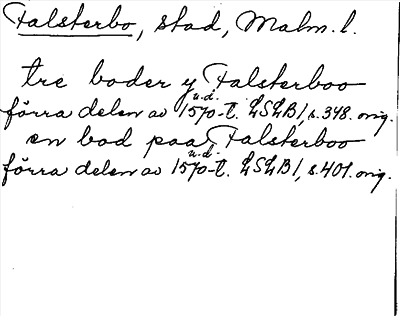 Falsterbo, stad, Malm. l.
tre boder y Falsterboo
u.d.
förra delen av 1570-t. LSLB1, s. 348. orig.
en bod paa Falsterboo
u.d.
förra delen av 1570-t. LSLB1, s. 401. orig.